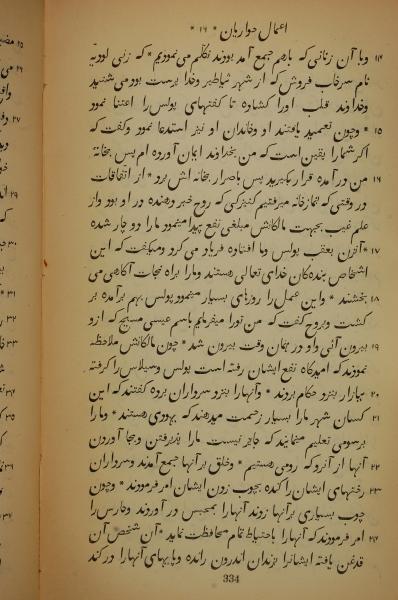 اعمال حواریان * ۱۶ *
۱۴ وبا آن زنانی که باهم جمع آمده بودند تکلم می نمودیم * که زنی لودیه
نام سرخاب فروش که از شهر ثیاطیر وخدا پرست بود می شنید
وخداوند قلب اورا کشاده تا کفتهای پولس را اعتنا نمود
۱۵ * وچون تعمید یافتند او وخاندان او نیز استدعا نمود وکفت که
اکر شمارا یقین است که من بخداوند ایمان آورده ام پس بخانهٔ
۱۶ من در آمده قرار بکیرید پس باصرار بخانه اش برد * از اتفاقات
در وقتی که بنمازخانه میرفتیم کنیزکی که روح خبر دهنده در او بود واز
علم غیب بجهت مالکانش مبلغی نفع پیدا مینمود مارا دو چار شده
۱۷ * آنزن بعقب پولس وما افتاده فریاد می کرد ومیکفت که این
اشخاص بنده کان خدای تعالی هستند ومارا براه نجات آکاهی می
۱۸ بخشند * واین عمل را روزهای بسیار مینمود پولس بهم برآمده بر
کشت وبروح کفت که من تورا میفرمایم باسم عیسی مسیح که ازو
۱۹ بیرون آئی واو در همان وقت بیرون شد * چون مالکانش ملاحظه
نمودند که امیدکاه نفع ایشان رفته است پولس وسیلاس را کرفته
۲۰ ببازار بنزد حکام بردند * وآنهارا بنزد سرداران برده کفتند که این
۲۱ کسان شهر مارا بسیار زحمت میدهند که یهودی هستند * ومارا
برسومی تعلیم مینمایند که جایز نیست مارا پذیرفتن وبجا آوردن
۲۲ آنها از آنرو که رومی هستیم * وخلق بر آنها جمع آمدند وسرداران
۲۳ رختهای ایشان را کنده بچوب زدن ایشان امر فرمودند * وچون
چوب بسیاری بر آنها زدند آنهارا بمحبس در آوردند وحارس را
۲۴ امر فرمودند که آنهارا باحتیاط تمام محافظت نماید * آن شخص آن
قدغن یافته ایشانرا بزندان اندرون رانده وپایهای آنهارا در کند
334